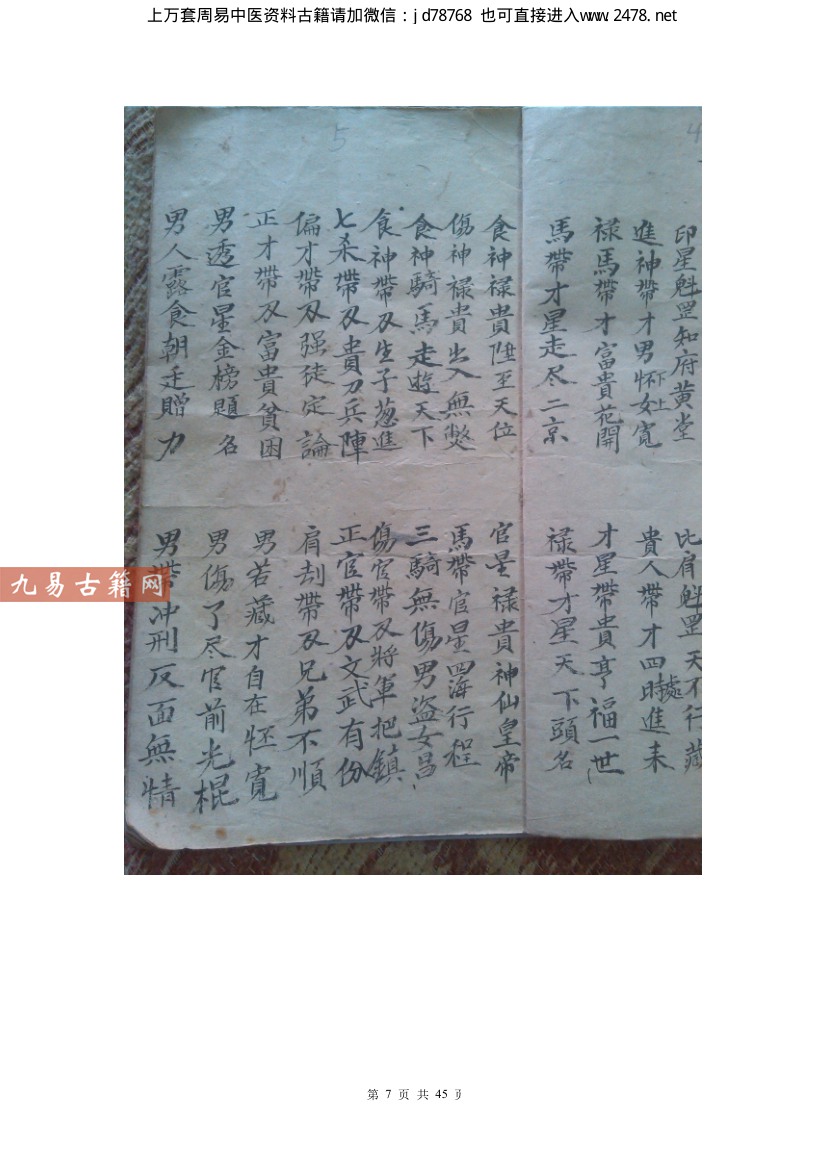 上万套周易中医资料古籍请加微信：jd78768 也可直接进入www.2478.net
4
印星魁罡知府黄堂
比肩魁罡天不行藏
進神帶才男怀女寬
下土
貴人帶才四時進来
處
禄馬帶才富貴花開
才星帶貴亨福一世
馬帶才星走尽二京
禄帶才星天下頭名
5
食神禄貴陞至天位
官星禄貴神仙皇帝
傷神禄貴出入無獘
馬帶官星四海行程
食神騎馬走遊天下
三騎無傷男盗女昌
食神帶刄生子葱進
傷官帶刄將軍把鎮
七杀帶刄貴刀兵陣
正官帶刄文武有份
偏才帶刄强徒定論
肩刦帶刄兄弟不順
正才帶刄富貴貧困
男若藏才自在怀寬
男透官星金榜題名
男傷了尽官前光棍
男人露食朝廷贈力
男帶冲刑反面無情
九易古籍网
第 7 页 共 45 页